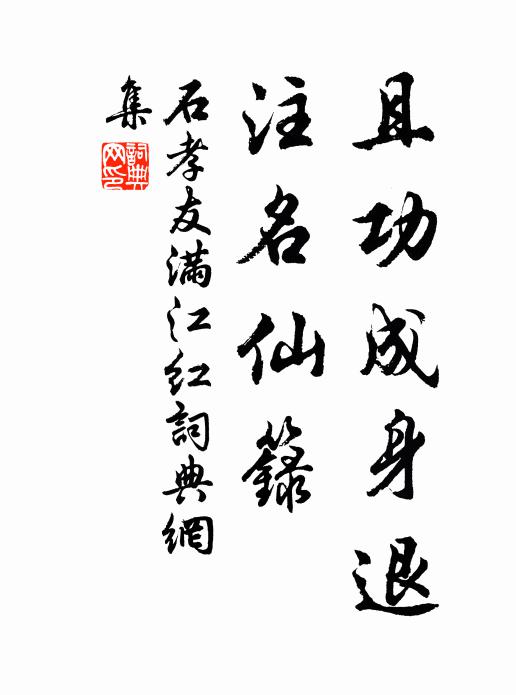 且功成身退
注名仙籙
石孝友滿江紅詞典網
集
詞典網印